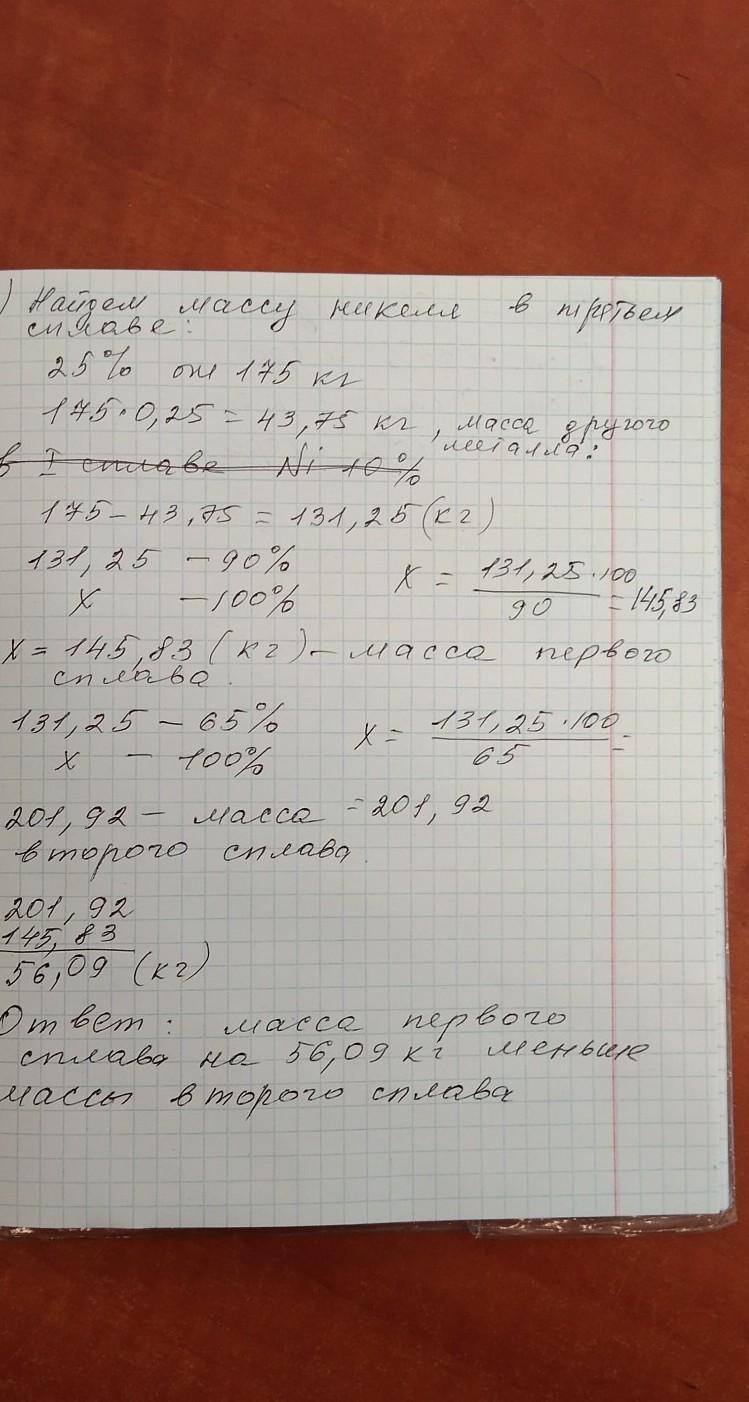 ) Найдем массу никеля в третьем
сплаве:
25% от 175 кг
175·0,25 = 43,75 кг, масса другого
металла:
в I сплаве Ni 10%
175 – 43,75 = 131,25 (кг)
131,25 – 90%
x – 100%
x = 131,25·100 / 90 = 145,83
x = 145,83 (кг) – масса первого
сплава.
131,25 – 65%
x – 100%
x = 131,25·100 / 65 =
201,92 – масса = 201,92
второго сплава.
201,92
145,83
56,09 (кг)
Ответ: масса первого
сплава на 56,09 кг меньше
массы второго сплава